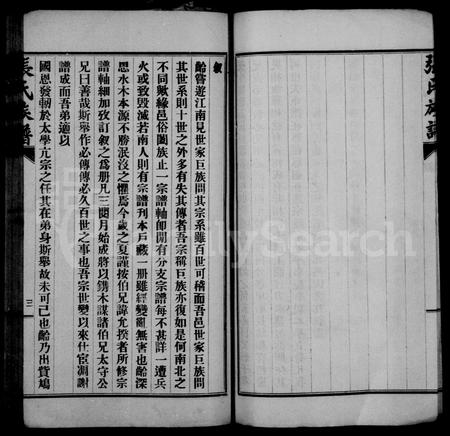 張氏族譜
敘
齡嘗遊江南見世家巨族問其宗系雖百世可稽而吾邑世家巨族問
其世系則十世之外多有失其傳者吾宗稱巨族亦復如是何南北之
不同歟緣邑俗闔族止一宗譜軸即間有分支宗譜每不甚詳一遭兵
火或致毀滅若南人則有宗譜刊本戶藏一册雖經變亂無害也齡深
思水木本源不勝泯沒之懼焉今歲之夏謹按伯兄諱允揆者所修宗
譜軸細加攷訂敘之為册凡三閱月始成將以鐫木謀諸伯兄太守公
兄曰善哉斯舉作必傳傳必久百世之事也吾宗世變以來仕宦凋謝
譜成而吾弟適以
國恩發軔於太學亢宗之任其在弟身斯舉故未可已也齡乃出貲鳩
張氏族譜
三
FamilySearch